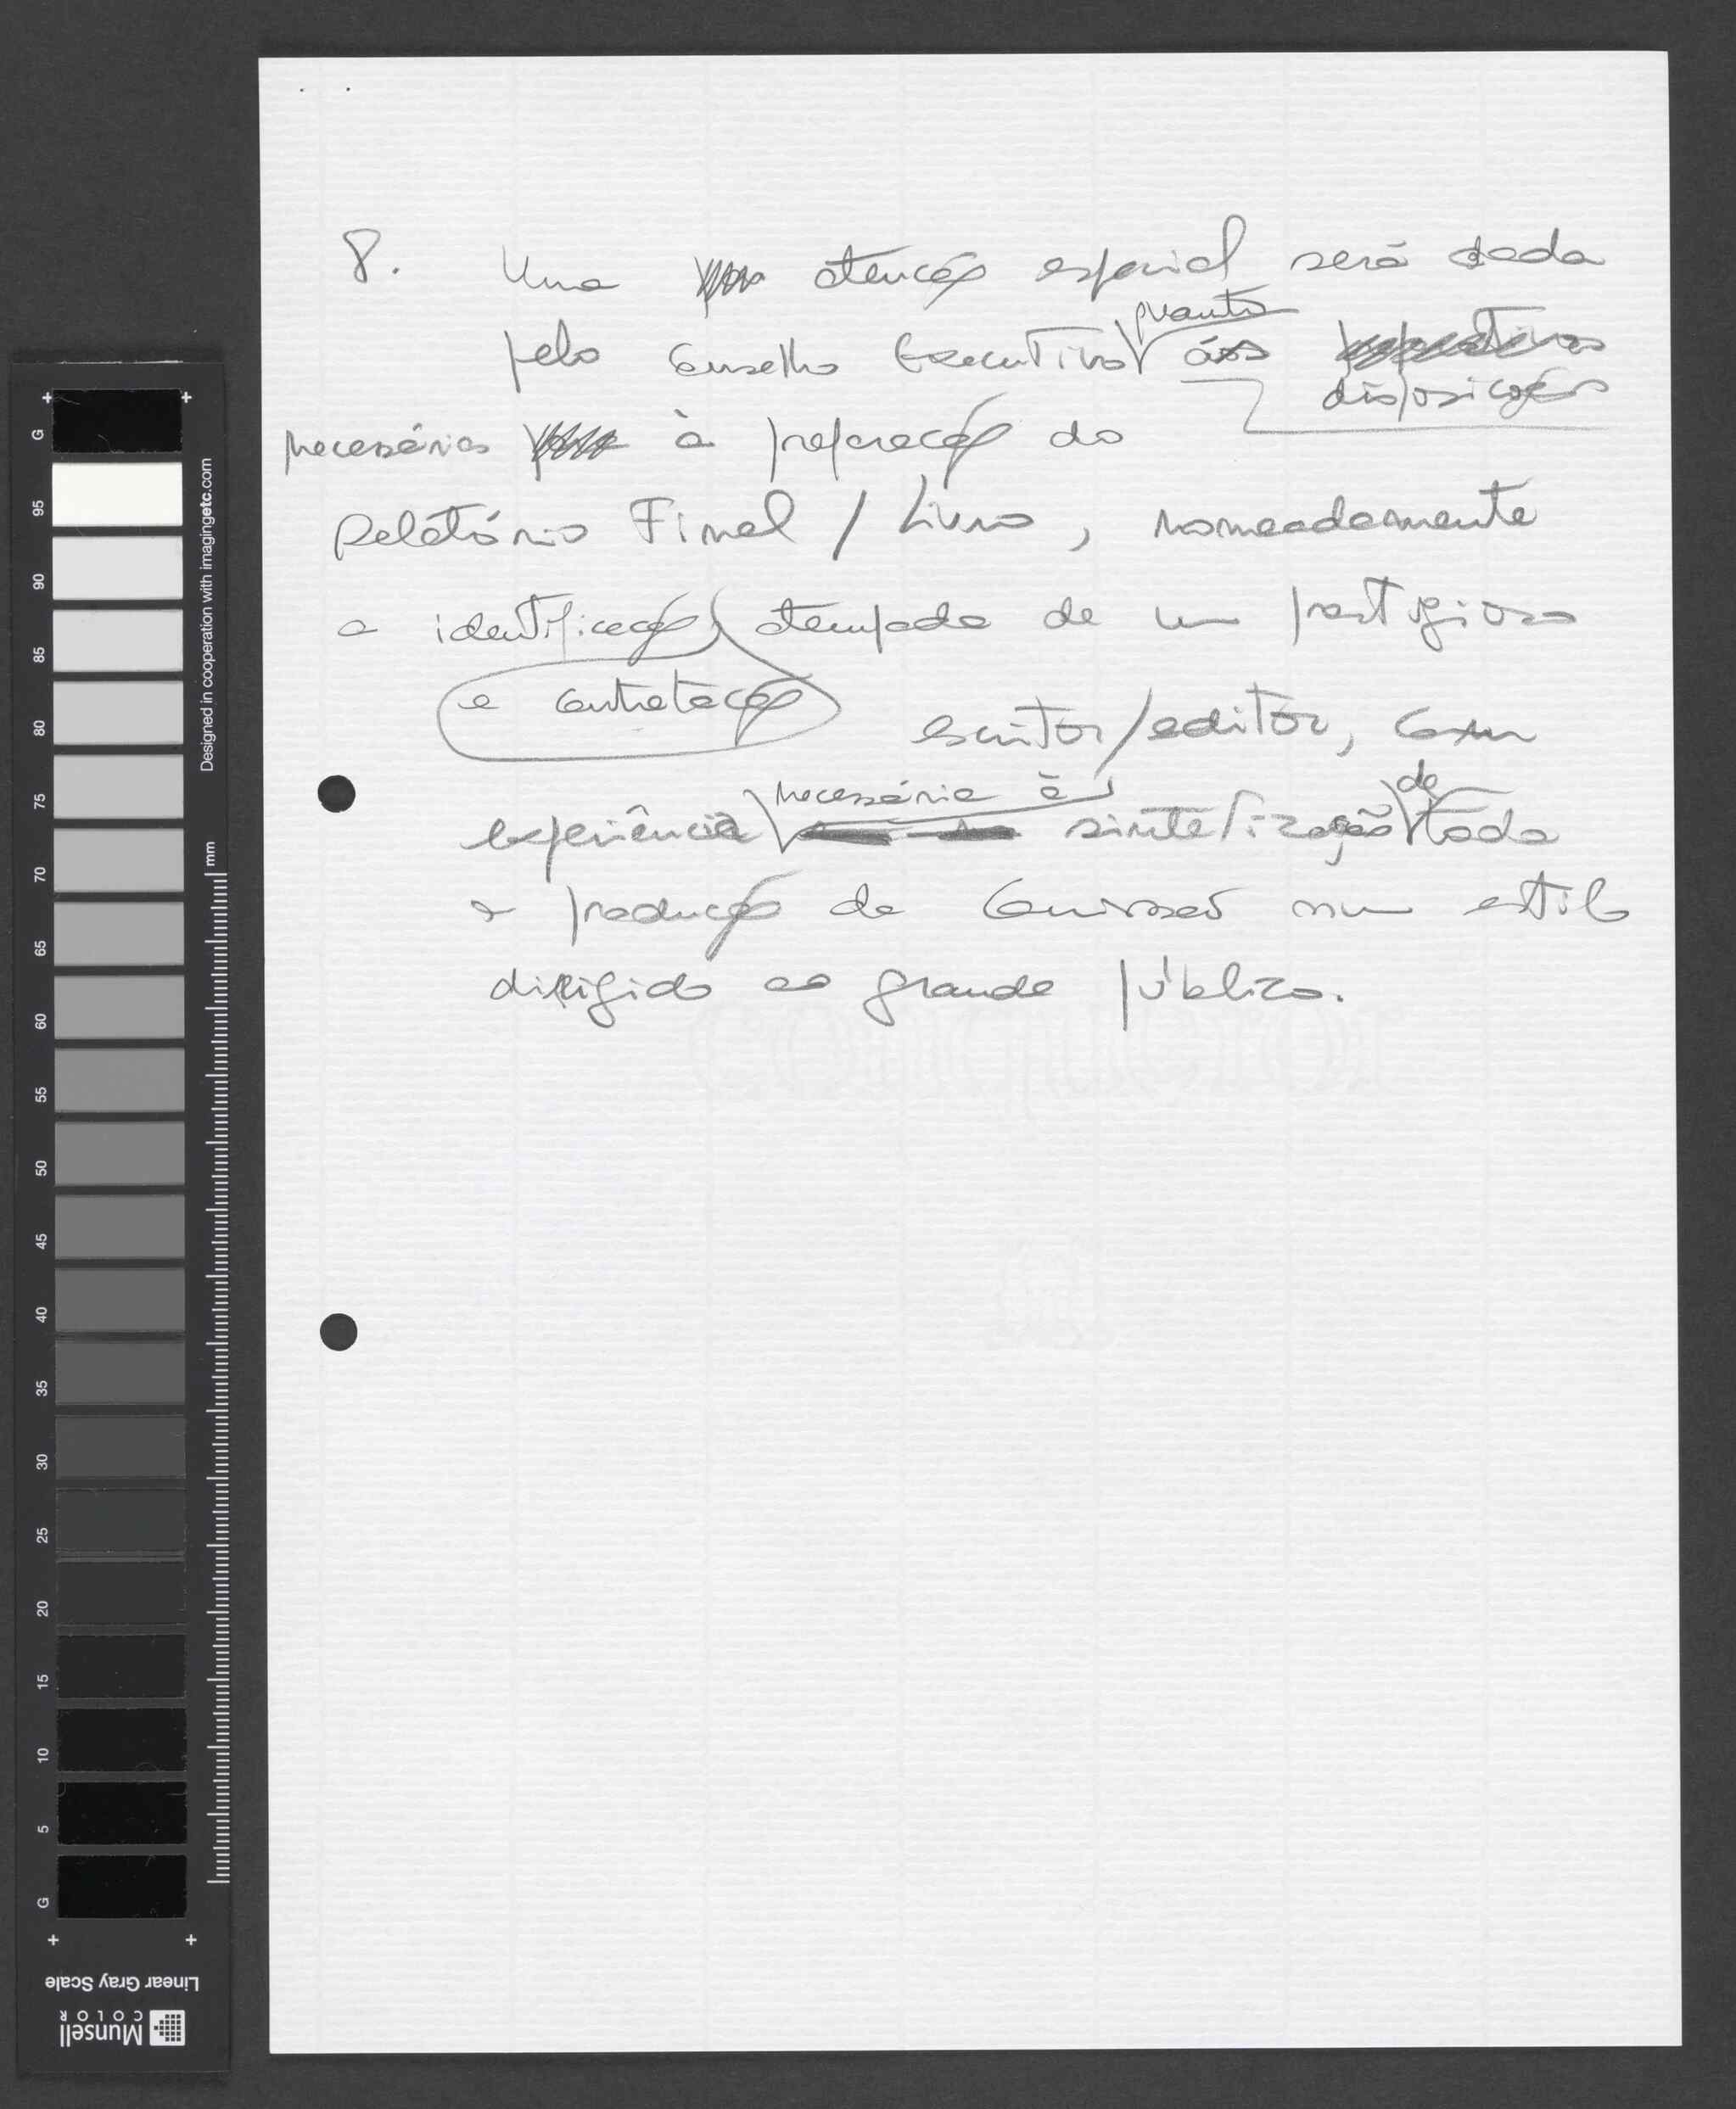 8. Uma atenção especial será dada
quanto
pelo Conselho Executivo às
disposições
necessárias à preparação do
Relatório Final / Livro, nomeadamente
a identificação atempada de um prestigioso
e contratação
escritor/editor, com
necessária à
de
experiência sintetização toda
a produção da Comissão num estilo
dirigido ao grande público.
Conqueror
G
95
90
85
80
75
70
65
60
55
50
45
40
35
30
25
20
15
10
5
G
Designed in cooperation with imagingetc.com
mm
Linear Gray Scale
Munsell
COLOR